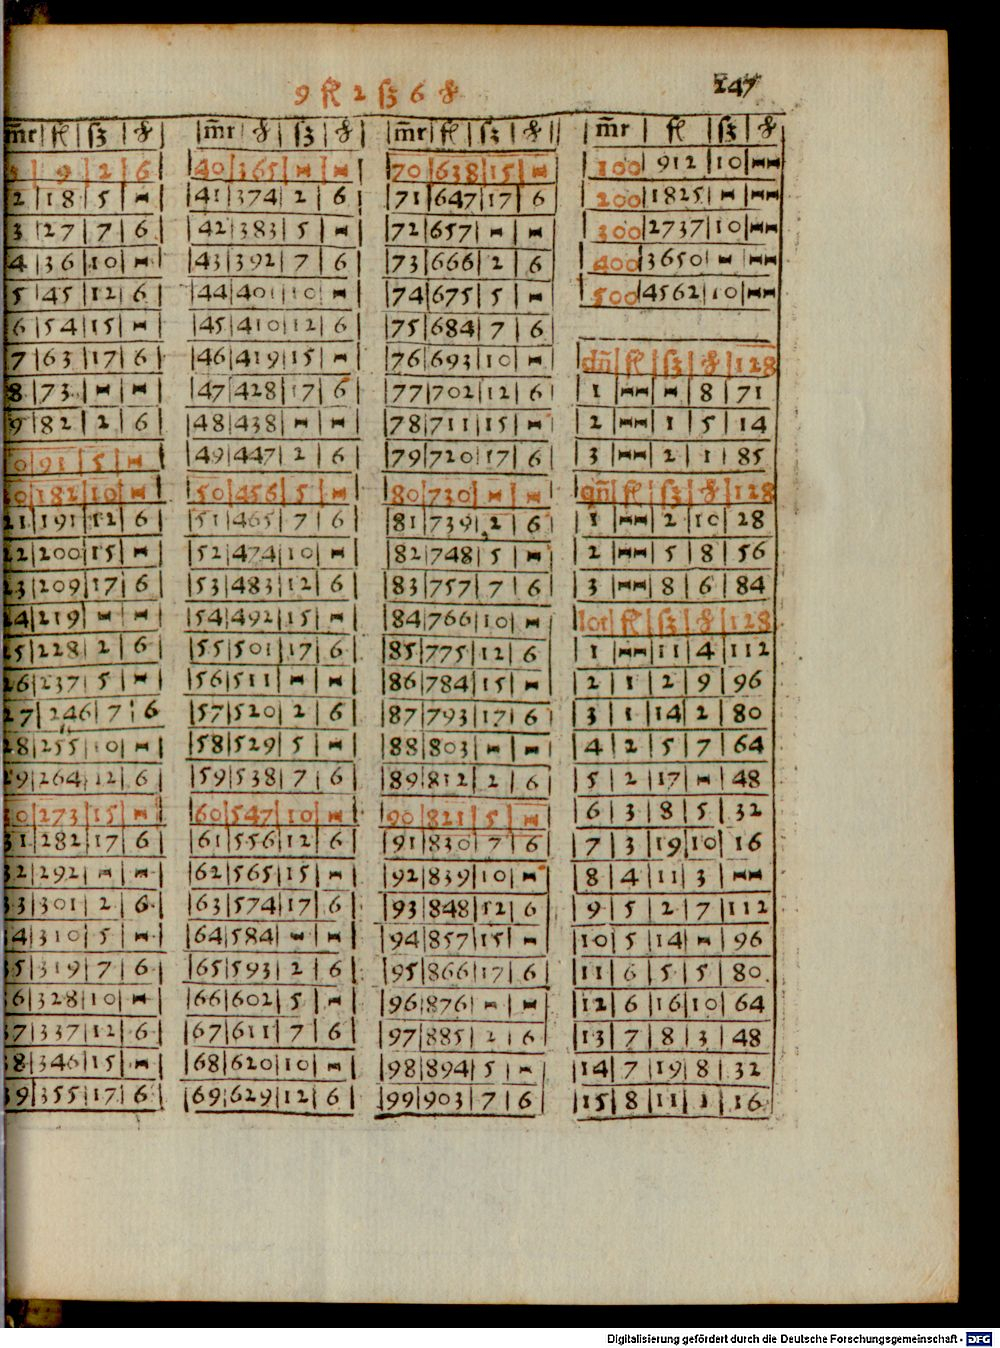 9 fl 2 ſz 6 ₰
247
m̄r | fl | ſz | ₰ | m̄r | ₰ | ſz | ₰ | m̄r | fl | ſz | ₰ | m̄r | fl | ſz | ₰
9 | 2 | 6 | 40 | 365 | - | - | 70 | 638 | 15 | - | 100 | 912 | 10 | --
2 | 18 | 5 | - | 41 | 374 | 2 | 6 | 71 | 647 | 17 | 6 | 200 | 1825 | - | --
3 | 27 | 7 | 6 | 42 | 383 | 5 | - | 72 | 657 | - | - | 300 | 2737 | 10 | --
4 | 36 | 10 | - | 43 | 392 | 7 | 6 | 73 | 666 | 2 | 6 | 400 | 3650 | - | --
5 | 45 | 12 | 6 | 44 | 401 | 10 | - | 74 | 675 | 5 | - | 500 | 4562 | 10 | --
6 | 54 | 15 | - | 45 | 410 | 12 | 6 | 75 | 684 | 7 | 6
7 | 63 | 17 | 6 | 46 | 419 | 15 | - | 76 | 693 | 10 | - | dn̄ | fl | ſz | ₰ | 128
8 | 73 | - | - | 47 | 428 | 17 | 6 | 77 | 702 | 12 | 6 | 1 | -- | - | 8 | 71
9 | 82 | 2 | 6 | 48 | 438 | - | - | 78 | 711 | 15 | - | 2 | -- | 1 | 5 | 14
0 | 91 | 5 | - | 49 | 447 | 2 | 6 | 79 | 720 | 17 | 6 | 3 | -- | 2 | 1 | 85
0 | 182 | 10 | - | 50 | 456 | 5 | - | 80 | 730 | - | - | qn̄ | fl | ſz | ₰ | 128
21 | 191 | 12 | 6 | 51 | 465 | 7 | 6 | 81 | 739 | 2 | 6 | 1 | -- | 2 | 10 | 28
22 | 200 | 15 | - | 52 | 474 | 10 | - | 82 | 748 | 5 | - | 2 | -- | 5 | 8 | 56
23 | 209 | 17 | 6 | 53 | 483 | 12 | 6 | 83 | 757 | 7 | 6 | 3 | -- | 8 | 6 | 84
24 | 219 | - | - | 54 | 492 | 15 | - | 84 | 766 | 10 | - | lot | fl | ſz | ₰ | 128
25 | 228 | 2 | 6 | 55 | 501 | 17 | 6 | 85 | 775 | 12 | 6 | 1 | -- | 11 | 4 | 112
26 | 237 | 5 | - | 56 | 511 | - | - | 86 | 784 | 15 | - | 2 | 1 | 2 | 9 | 96
27 | 246 | 7 | 6 | 57 | 520 | 2 | 6 | 87 | 793 | 17 | 6 | 3 | 1 | 14 | 2 | 80
28 | 255 | 10 | - | 58 | 529 | 5 | - | 88 | 803 | - | - | 4 | 2 | 5 | 7 | 64
29 | 264 | 12 | 6 | 59 | 538 | 7 | 6 | 89 | 812 | 2 | 6 | 5 | 2 | 17 | - | 48
30 | 273 | 15 | - | 60 | 547 | 10 | - | 90 | 821 | 5 | - | 6 | 3 | 8 | 5 | 32
31 | 282 | 17 | 6 | 61 | 556 | 12 | 6 | 91 | 830 | 7 | 6 | 7 | 3 | 19 | 10 | 16
32 | 292 | - | - | 62 | 565 | 15 | - | 92 | 839 | 10 | - | 8 | 4 | 11 | 3 | --
33 | 301 | 2 | 6 | 63 | 574 | 17 | 6 | 93 | 848 | 12 | 6 | 9 | 5 | 2 | 7 | 112
34 | 310 | 5 | - | 64 | 584 | - | - | 94 | 857 | 15 | - | 10 | 5 | 14 | - | 96
35 | 319 | 7 | 6 | 65 | 593 | 2 | 6 | 95 | 866 | 17 | 6 | 11 | 6 | 5 | 5 | 80
36 | 328 | 10 | - | 66 | 602 | 5 | - | 96 | 876 | - | - | 12 | 6 | 16 | 10 | 64
37 | 337 | 12 | 6 | 67 | 611 | 7 | 6 | 97 | 885 | 2 | 6 | 13 | 7 | 8 | 3 | 48
38 | 346 | 15 | - | 68 | 620 | 10 | - | 98 | 894 | 5 | - | 14 | 7 | 19 | 8 | 32
39 | 355 | 17 | 6 | 69 | 629 | 12 | 6 | 99 | 903 | 7 | 6 | 15 | 8 | 11 | 1 | 16
Digitalisierung gefördert durch die Deutsche Forschungsgemeinschaft - DFG